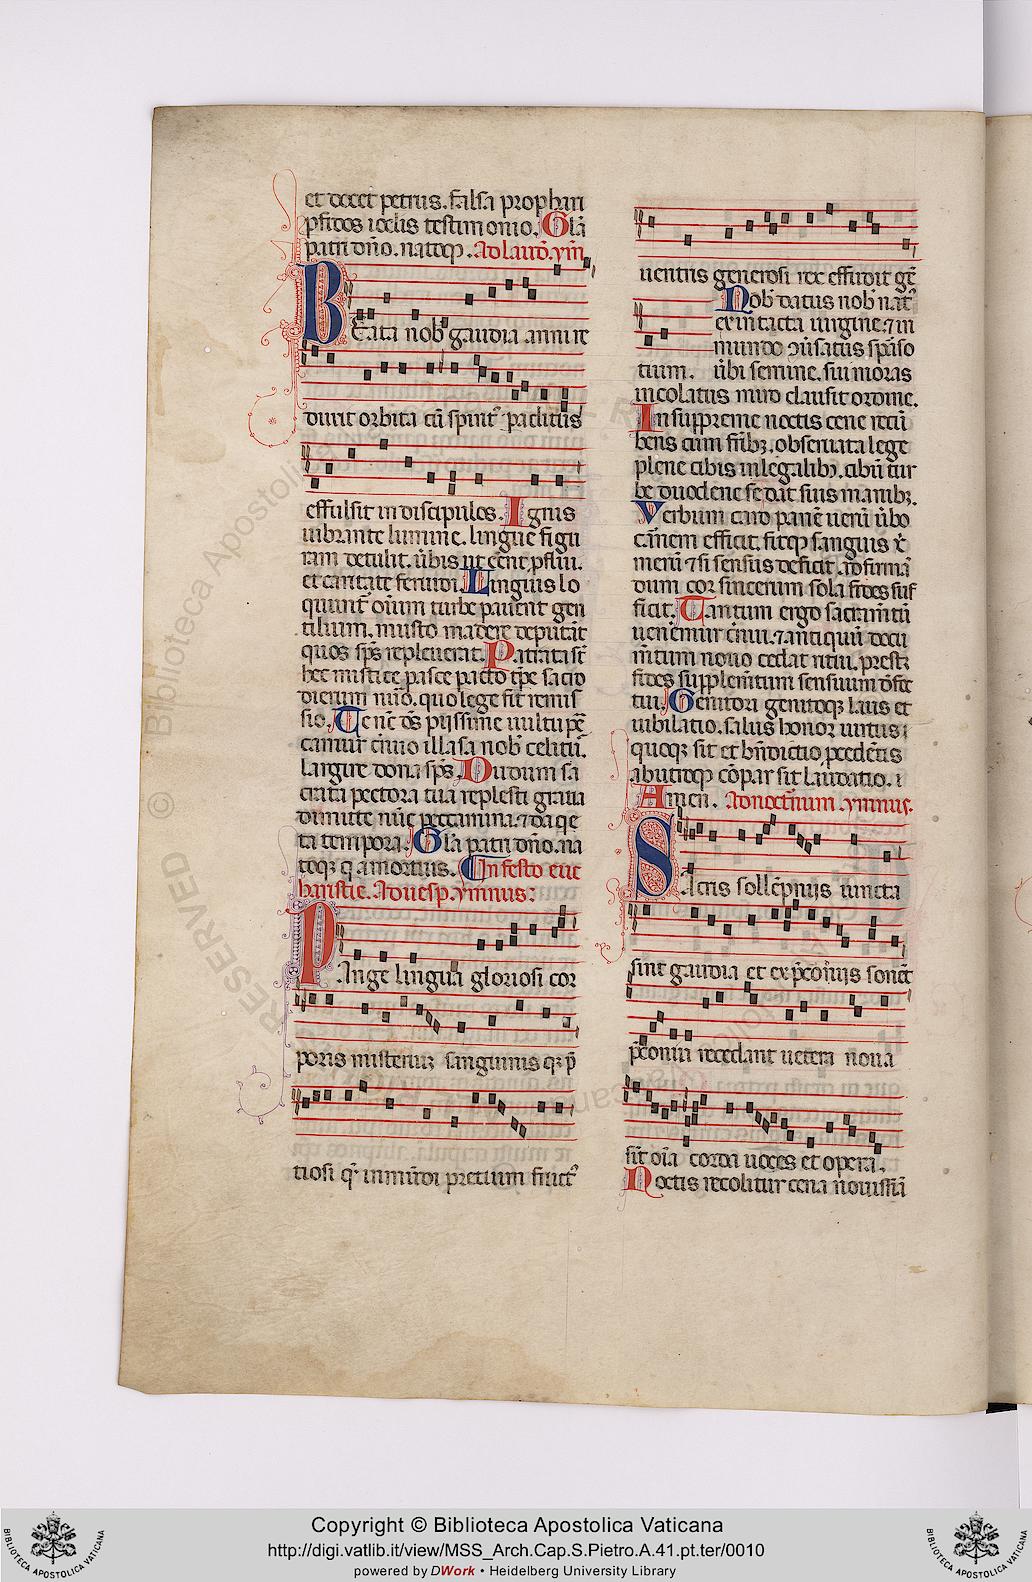 et docet petrus. falsa prophari
pfidos ioelis testimonio. Gla
patri dno. natoq. Ad laud. ymn
BEata nob gaudia anni re
duxit orbita cu spirit paclitus
effulsit in discipulos. Ignis
vibrante lumine. lingue figu
ram detulit. ubis ut eent pflui.
et caritate feruidi. Linguis lo
quunt oium turbe pauent gen
tilium. musto madere deputat
quos sps repleuerat. Patrata st
hec mistice pasce pacto tpe sacro
dierum nuo. quo lege fit remis
sio. Te nc ds piissime uultu pc
camur cnuo illasa nob celitu.
largire dona sps. Dudum sa
crata pectora tua replesti gratia
dimitte nuc peccamina. et da qe
ta tempora. Gla patri dno. na
toq q a mortuis. In festo euc
haristie. Ad uesp. ymnus:
PAnge lingua gloriosi cor
poris misterium sanguinis q p
tiosi q in mundi pretium fruct
uentris generosi rex effudit ge
tium.
Nob datus nob nat
ex intacta uirgine. et in
mundo uusatus spaso
ubi semine. sui moras
incolatus miro clausit ordine.
In suppreme noctis cene recu
bens cum frib. obseruata lege
plene cibis in legalib. cibu tur
be duodene se dat suis manib.
Verbum caro pane ueru ubo
carnem efficit. fitq sanguis x
meru et si sensus deficit. ad firma
dum cor sincerum sola fides suf
ficit. Tantum ergo sacramtu
ueneremur cnui. et antiquu docu
mtum nouo cedat ritui. prestz
fides supplemtum sensuum defec
tui. Genitori genitoq laus et
iubilatio. salus honor uirtus
quoq sit et bndictio. pcedetis
ab utroq compar sit laudatio.
Amen. Ad nocturnum. ymnus.
SAcris sollepniis iuncta
sint gaudia et ex pcordiis sonet
pconia recedant uetera noua
sit oia corda uoces et opera.
Noctis recolitur cena nouissia
Copyright © Biblioteca Apostolica Vaticana
http://digi.vatlib.it/view/MSS_Arch.Cap.S.Pietro.A.41.pt.ter/0010
powered by DWork • Heidelberg University Library